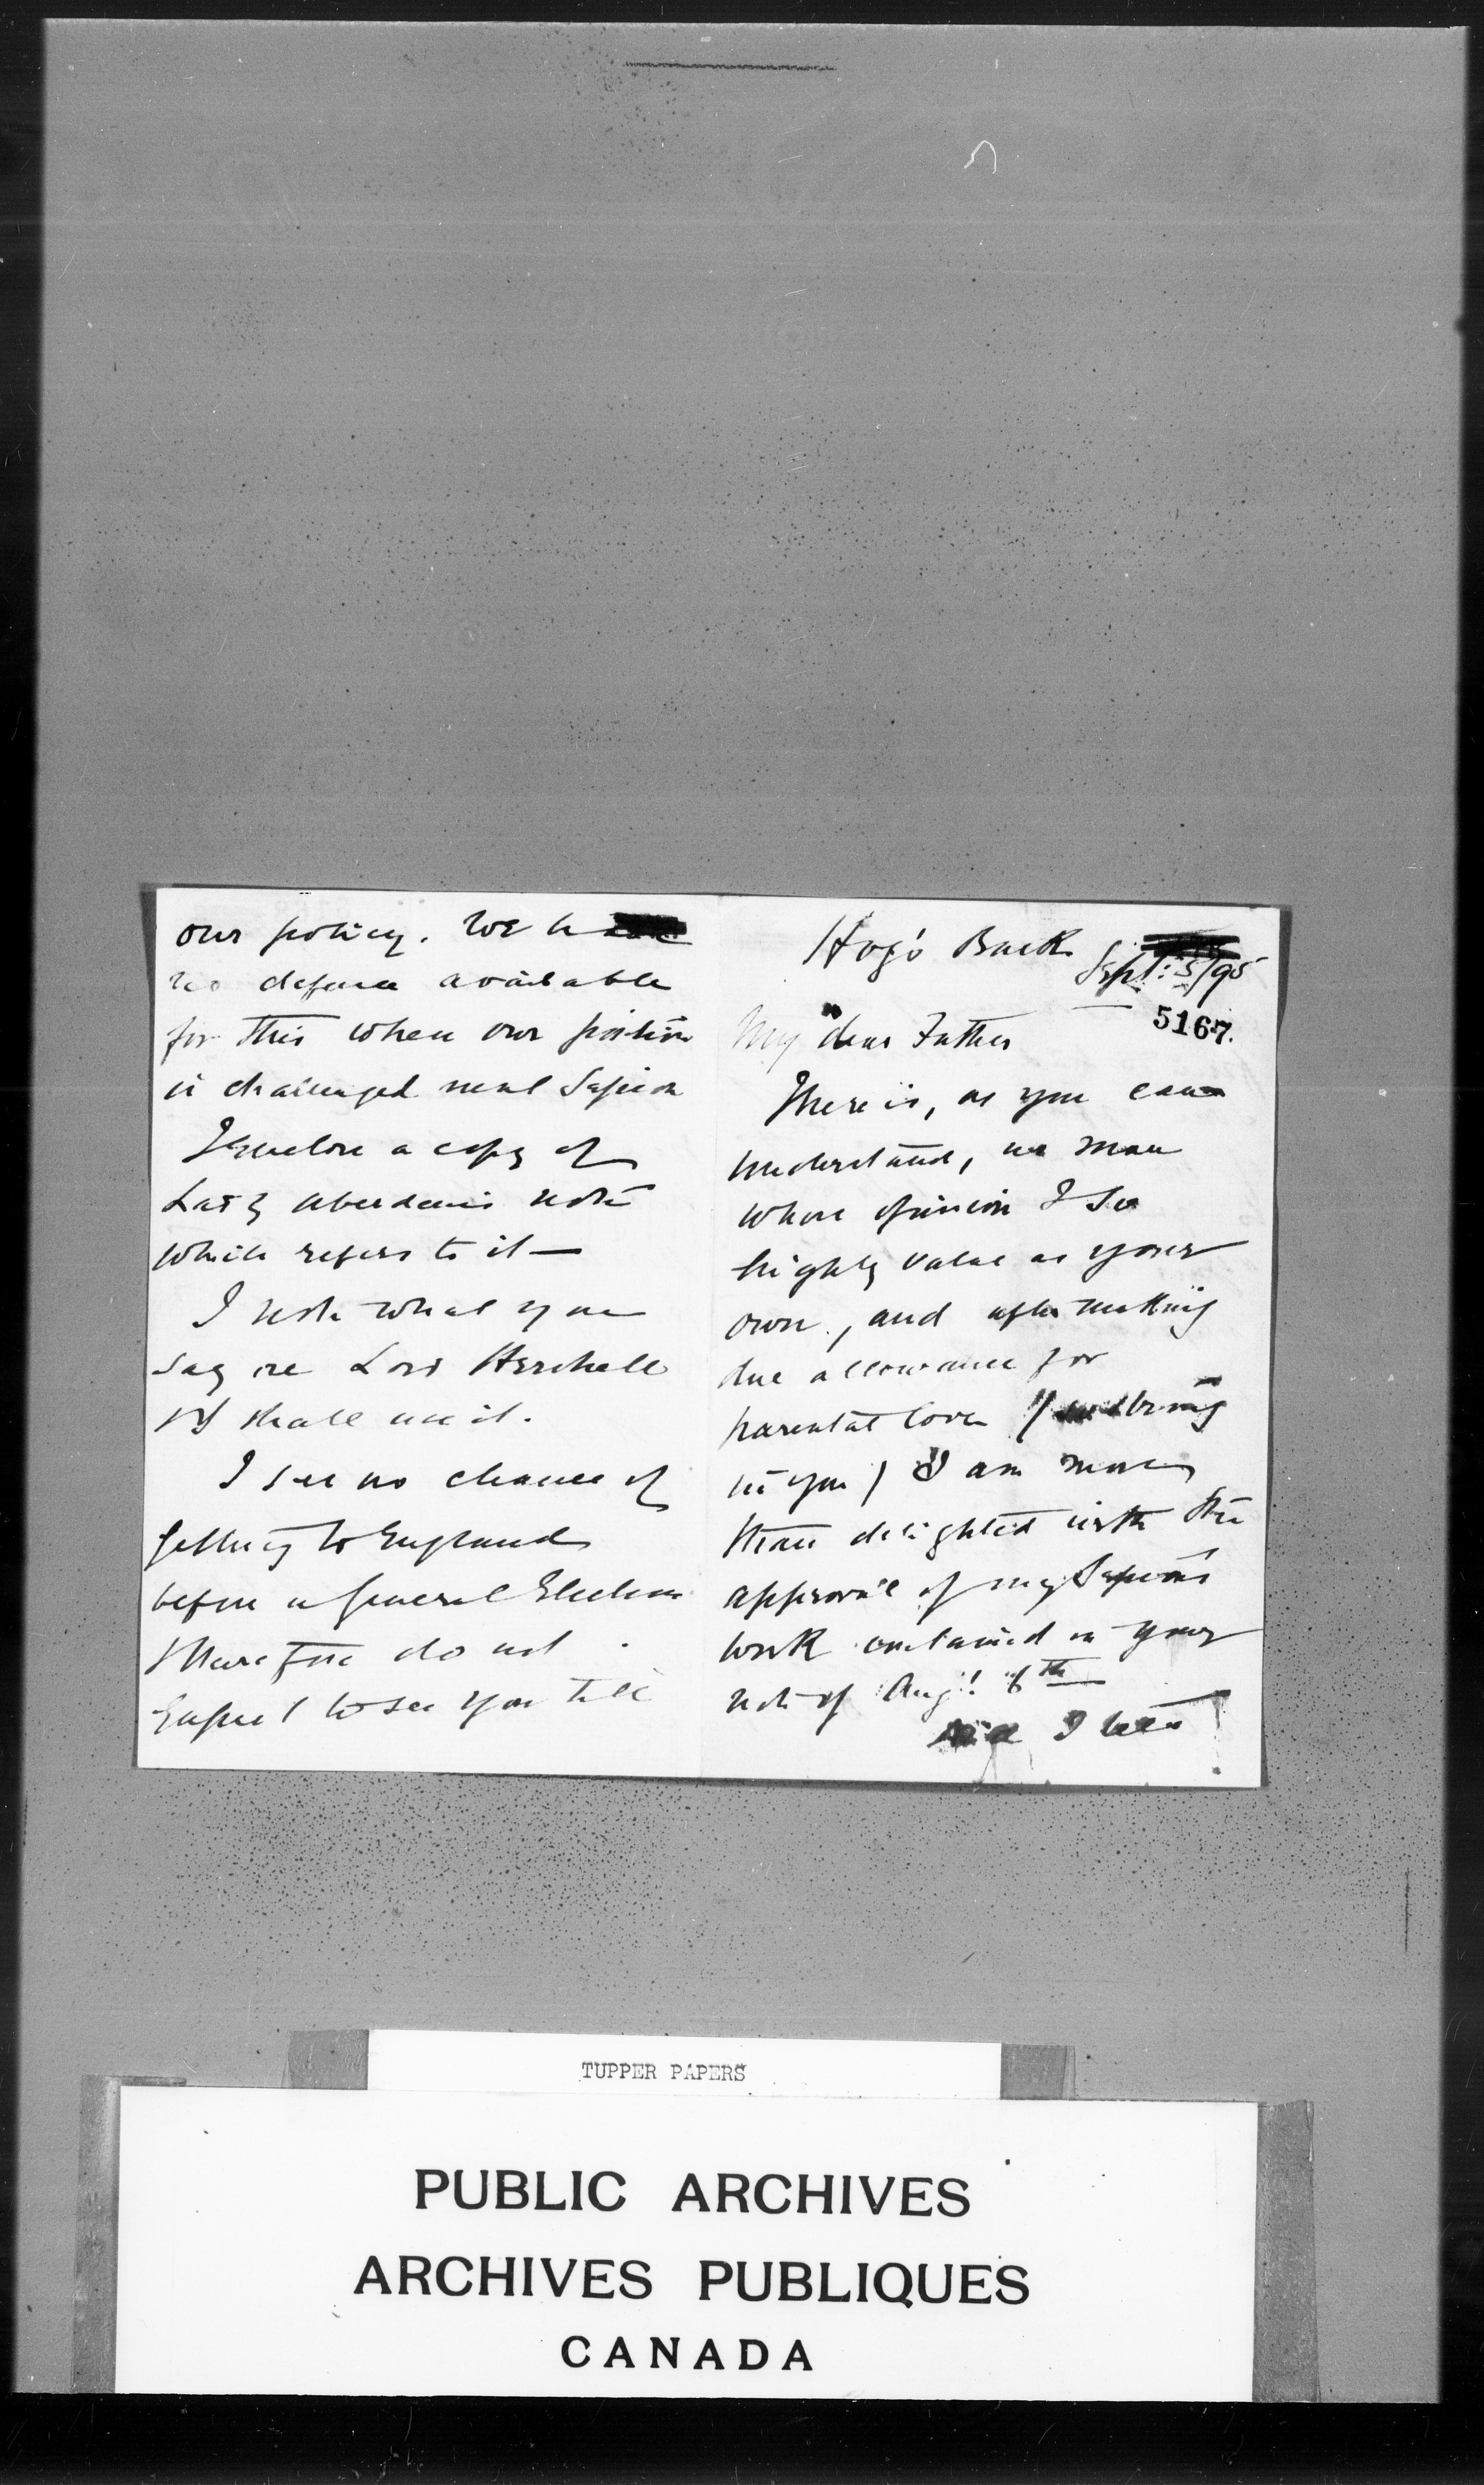 Hog's Back
Sept: 5/95
5167.
My dear Father
There is, as you can
understand, no man
whose opinion I so
highly value as your
own, and after making
due allowance for
parental love (
in you) I am more
than delighted with the
approval of my Session's
work contained in your
note of Aug! 6th
I
our policy. We
no defence available
for this when our position
is challenged next Session
I enclose a copy of
Lady Aberdeen's note
which refers to it —
I note what you
say re Lord Herschell
& shall use it.
I see no chance of
getting to England
before a General Election
& therefore do not
expect to see you till
TUPPER PAPERS
PUBLIC ARCHIVES
ARCHIVES PUBLIQUES
CANADA